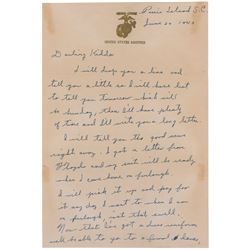 Paris Island S.C.
June 20 1943
UNITED STATES MARINES
Darling Kiddo
I will drop you a line and
tell you a little so I will have lot
to tell you tomorrow which will
be Sunday, then I'll have plenty
of time and I'll write you a long letter.
I will tell you the good news
right away. I got a letter from
Floyd and my suit will be ready
when I come home on furlough.
I will pick it up and pay for
it any day I want to when I am
on furlough, isn't that swell.
Now that I've got a dress uniform
well be able to go to a formal dance,